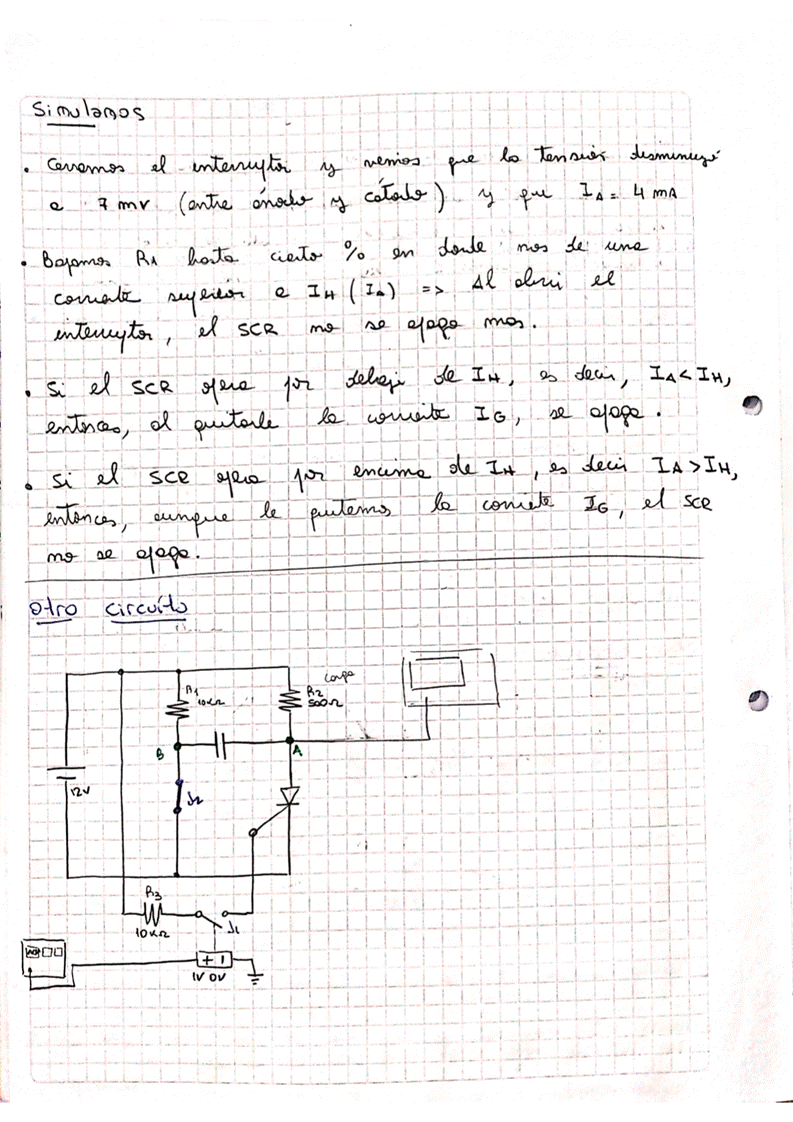 Simulamos
• Cerramos el interruptor y vemos que la tensión disminuyó
a 7 mv (entre ánodo y cátodo) y que IA = 4 mA
• Bajamos RA hasta cierto % en donde nos de una
corriente superior a IH (IA) => Al abrir el
interruptor, el SCR no se apaga mas.
• Si el SCR opera por debajo de IH, es decir, IA < IH,
entonces, al quitarle la corriente IG, se apaga.
• Si el SCR opera por encima de IH, es decir IA > IH,
entonces, aunque le quitemos la corriente IG, el SCR
no se apaga.
Otro circuito
carga
R1
10KΩ
R2
500Ω
B
A
12V
J2
R3
10KΩ
J1
+ -
1V 0V